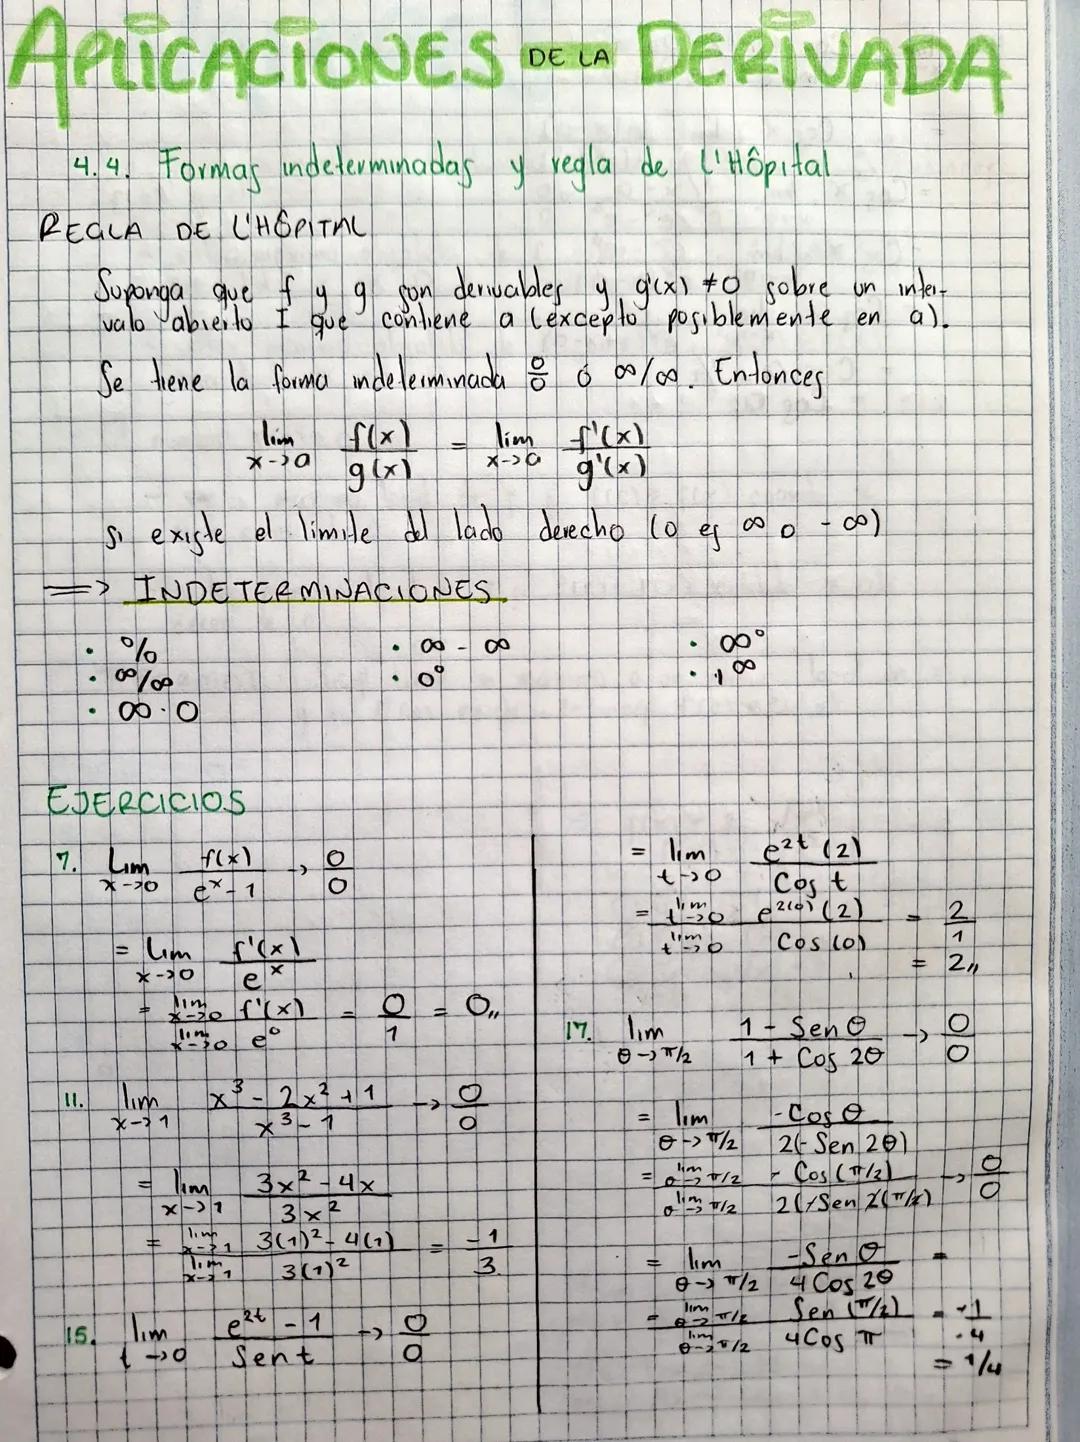 APLICACIONES DE LA DERIVADA
4.4. Formas indeterminadas y regla de L'Hôpital
REGLA DE L'HÔPITAL
Suponga que f y g son derivables y g'(x) ≠ 0 sobre un inter-
valo abierto I que contiene a (excepto posiblemente en a).
Se tiene la forma indeterminada 0/0 ó ∞/∞. Entonces
lim x->a f(x)/g(x) = lim x->a f'(x)/g'(x)
si existe el límite del lado derecho (o es ∞ o -∞)
=> INDETERMINACIONES
• 0/0 • ∞ - ∞ • ∞⁰
• ∞/∞ • 0⁰ • 1^∞
• ∞·0
EJERCICIOS
7. Lim x->0 f(x)/(e^x - 1) -> 0/0
= Lim x->0 f'(x)/e^x
= lim x->0 f'(x) / lim x->0 e^0 = 0/1 = 0,,
11. lim x->1 (x³ - 2x² + 1)/(x³ - 1) -> 0/0
= lim x->1 (3x² - 4x)/(3x²)
= lim x->1 3(1)² - 4(1) / lim x->1 3(1)² = -1/3
15. lim t->0 (e^2t - 1)/Sen t -> 0/0
= lim t->0 e^2t (2)/Cos t
= lim t->0 e^2(0) (2) / lim t->0 Cos (0) = 2/1
= 2,,
17. lim θ->π/2 (1 - Sen θ)/(1 + Cos 2θ) -> 0/0
= lim θ->π/2 -Cos θ/2(-Sen 2θ)
= lim θ->π/2 - Cos (π/2) / lim θ->π/2 2(-Sen 2(π/2) -> 0/0
= lim θ->π/2 -Sen θ/4 Cos 2θ =
= lim θ->π/2 Sen (π/2) / lim θ->π/2 4 Cos π = -1/-4
= 1/4